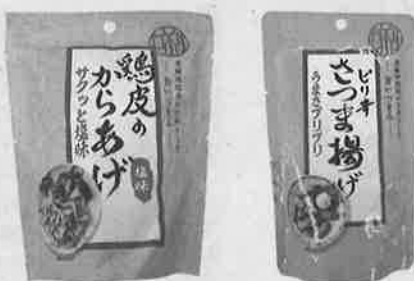 鶏皮の
からあげ
サクッと塩味
塩味
ピリ辛
さつま揚げ
うまさプリプリ